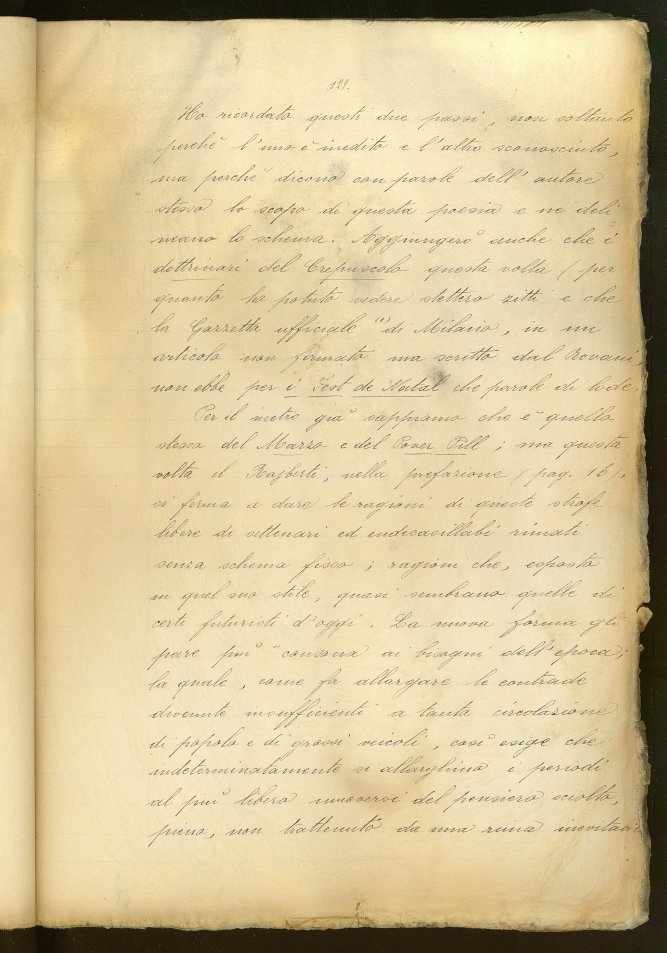 129.
Ho ricordato questi due passi, non soltanto
perchè l'uno è inedito e l'altro sconosciuto,
ma perchè dicono con parole dell'autore
stesso lo scopo di questa poesia e ne deli=
neano lo schema. Aggiungerò anche che i
dottrinari del Crepuscolo questa volta (per
quanto ho potuto vedere stettero zitti e che
la Gazzetta ufficiale (1) di Milano, in un
articolo non firmato ma scritto dal Rovani,
non ebbe per i Fest de Natal che parole di lode.
Per il metro già sappiamo che è quello
stesso del Marzo e del Pover Pill; ma questa
volta il Rajberti, nella prefazione (pag. 16),
si ferma a dare le ragioni di queste strofe
libere di settenari ed endecasillabi rimati
senza schema fisso; ragioni che, esposte
in quel suo stile, quasi sembrano quelle di
certi futuristi d'oggi. La nuova forma gli
pare più "consona ai bisogni dell'epoca;
la quale, come fa allargare le contrade
divenute insufficienti a tanta circolazione
di popolo e di grossi veicoli, così esige che
indeterminatamente si allarghino i periodi
al più libero muoversi del pensiero sciolto,
pieno, non trattenuto da una rima inevitabi